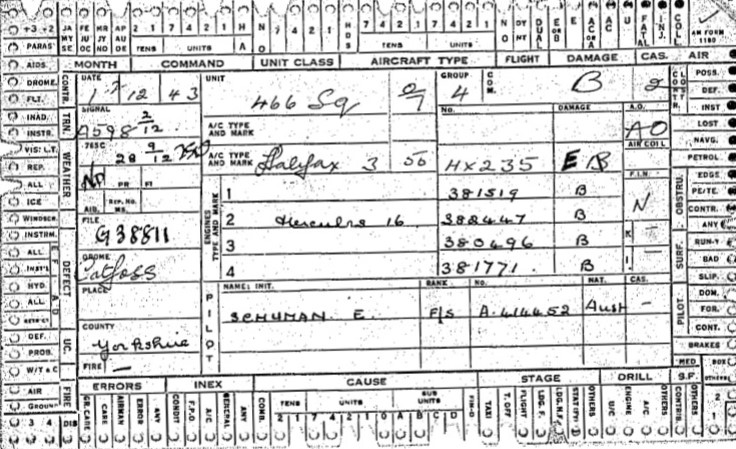 +3 +2 JA MY SE FE JU OC MR JY NO AP AU DE 2 1 7 4 2 1 H A NO 7 4 2 1 HDS 7 4 2 1 0 7 4 2 1 NO DY MT DUAL E OR B E AC OR A U FATAL INJ. COLL AM FORM 1180
PARAS TENS UNITS TENS UNITS
AIDS MONTH COMMAND UNIT CLASS AIRCRAFT TYPE FLIGHT DAMAGE CAS. AIR POSS.
DROME. CONTR. DATE UNIT GROUP COM. DEF.
FLT. 1 12 43 466 Sq 0/7 4 B 2 INST
INAD. TRN. SIGNAL A/C TYPE AND MARK No. DAMAGE A.O. LOST
INSTR. A598 2/12 AO NAVG.
VIS: L.T. WEATHER 765C A/C TYPE AND MARK AIR COLL PETROL
REP. 28 9/12 Halifax 3 56 HX235 E B EDGE
ALL PR FI F.I.N. OBSTRU. PE/TE.
ICE AID. REP. NO. 1 381519 B N CONTR.
WINDSCR. FILE ENGINES TYPE AND MARK 2 Hercules 16 388447 B ANY
INSTRM. G38811 3 380496 B K SURF. RUN-Y
ALL DEFECT DROME 4 381771 B I. BAD
INST'L Catfoss SLIP.
HYD. PLACE PILOT NAME: INIT. RANK No. NAT. CAS. DOM.
ALL SCHUMAN E. F/S A.414452 Aust — PILOT FOR.
DEF. COUNTY CONT.
PROB. UC. Yorkshire BRAKES
W/T & C FIRE — MED BOX
AIR FIRE ERRORS INEX CAUSE STAGE DRILL S.F. OTHERS
GROUND GR CARE CARE AIRMAN ERROR ANY CONDIT F.P.O A/C GENERAL ANY COMB. TENS UNITS SUB UNITS TAXI T. OFF FLIGHT LDG. F. LDG. N.F. OTHERS U/C ENGINE A/C OTHERS CONTRIB. OTHERS
3 4 DIS 2 1 7 4 2 1 0 A B C D